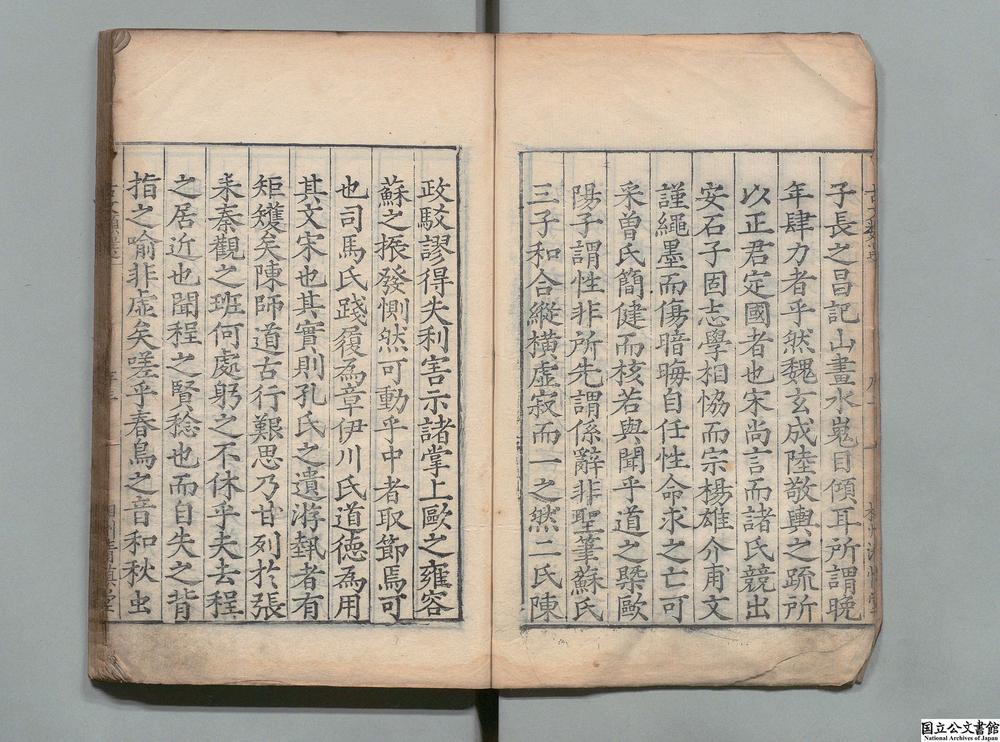 子長之昌記山畫水嵬目傾耳所謂晚
年肆力者乎然魏玄成陸敬輿之疏所
以正君定國者也宋尚言而諸氏競出
安石子固志學相恊而宗楊雄介甫文
謹繩墨而傷暗晦自任性命求之亡可
采曽氏簡健而核若與聞乎道之槩歐
陽子謂性非所先謂係辭非聖筆蘇氏
三子和合縱橫虛寂而一之然二氏陳
政駁謬得失利害示諸掌上歐之雍容
蘇之振發惻然可動乎中者取節焉可
也司馬氏踐履為章伊川氏道徳為用
其文宋也其實則孔氏之遺游執者有
矩矱矣陳師道古行艱思乃甘列於張
耒秦觀之班何處躬之不休乎夫去程
之居近也聞程之賢稔也而自失之背
指之喻非虛矣嗟乎春鳥之音和秋虫
国立公文書館
National Archives of Japan